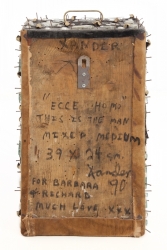 XANDER
"ECCE HOMO"
THIS IS THE MAN
MIXED MEDIUM
39 X 24 cm.
Xander
90
FOR BARBARA
& RICHARD
MUCH LOVE XXX